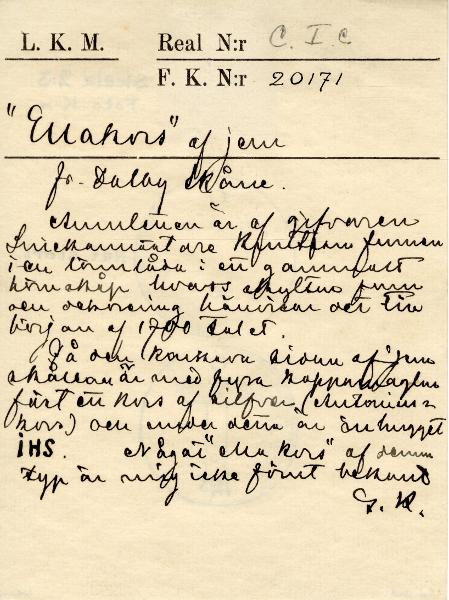 L. K. M. Real N:r C. I c
F. K. N:r 20171
"Ellakors" af jern
fr. Dalby Skåne.
Amuletten är af gifvaren
Snickaremästare Knutsson funnen
i en lönnlåda i ett gammalt
hörnskåp hvars skyltus form
och dekorering hänvisar det till
början af 1700 talet.
På den konkava sidan af jern
skållan är med fyra kopparnaglar
fäst ett kors af silfver (Antonius=
kors) och under detta är änhugget
IHS. Något "Ella kors" af denna
typ är mig icke förut bekant
G. K.